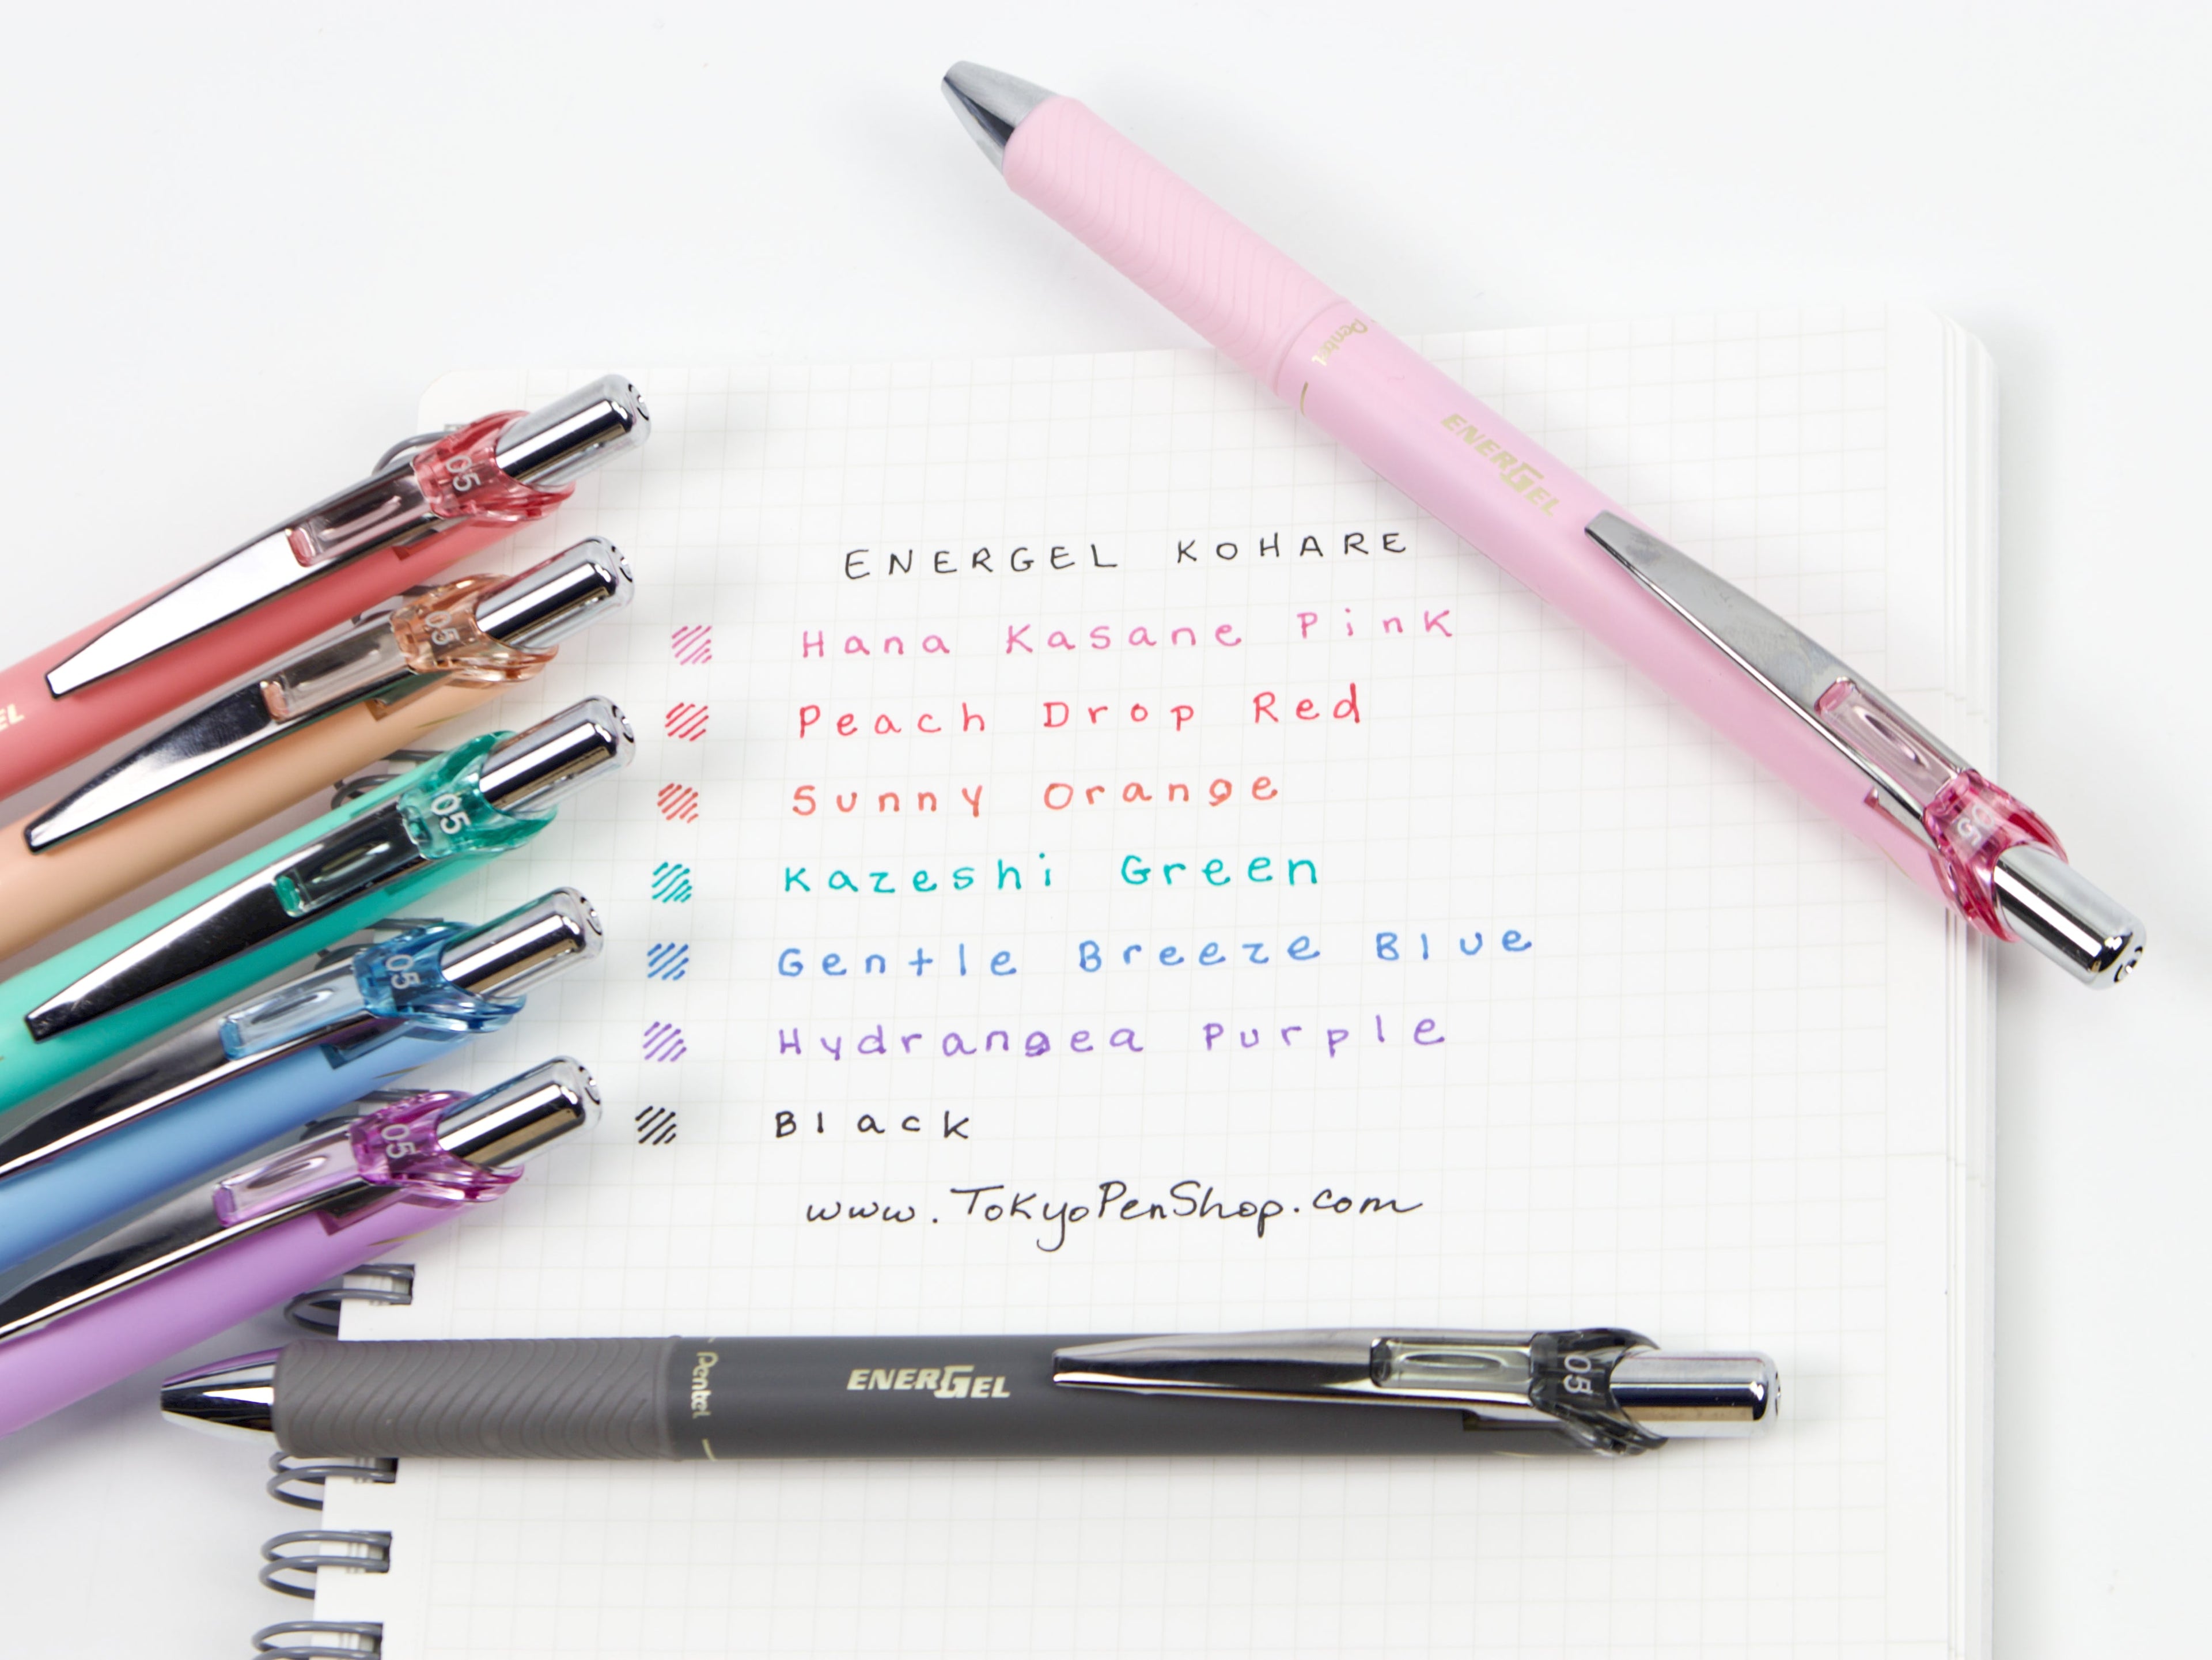 Pentel
ENERGEL
05
05
EL
05
05
05
05
ENERGEL KOHARE
Hana Kasane Pink
Peach Drop Red
Sunny Orange
Kazeshi Green
Gentle Breeze Blue
Hydrangea Purple
Black
www.TokyoPenShop.com
Pentel
ENERGEL
05